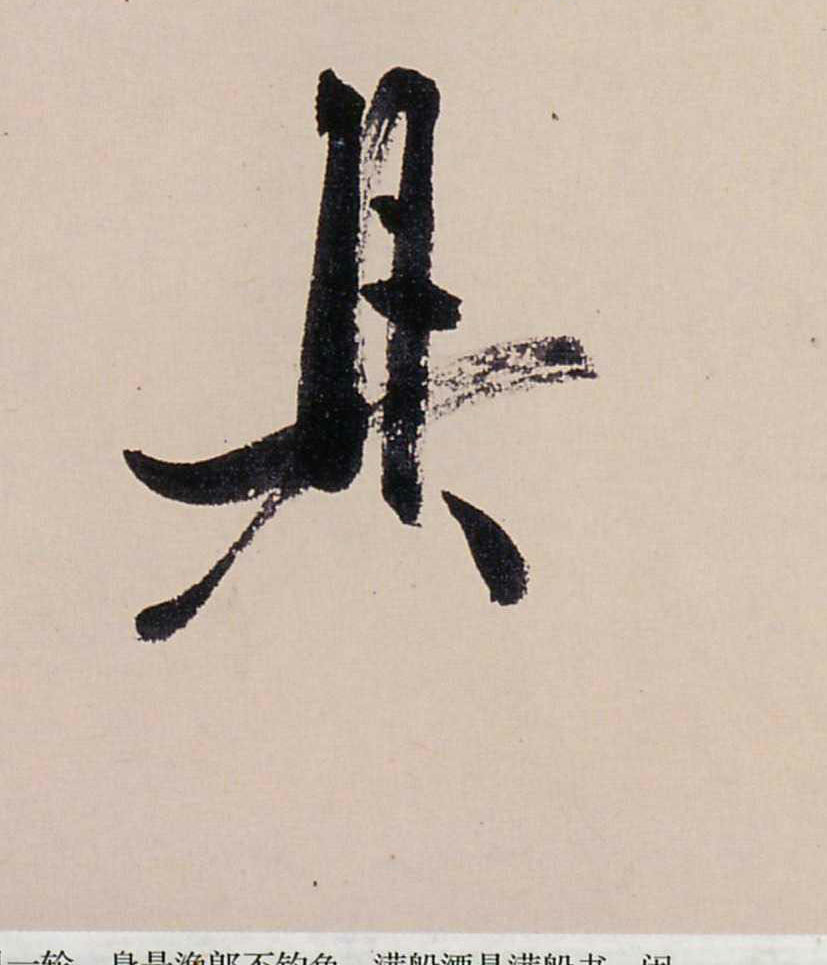 具
一轮 身是渔郎不钓鱼 满船酒具满船书